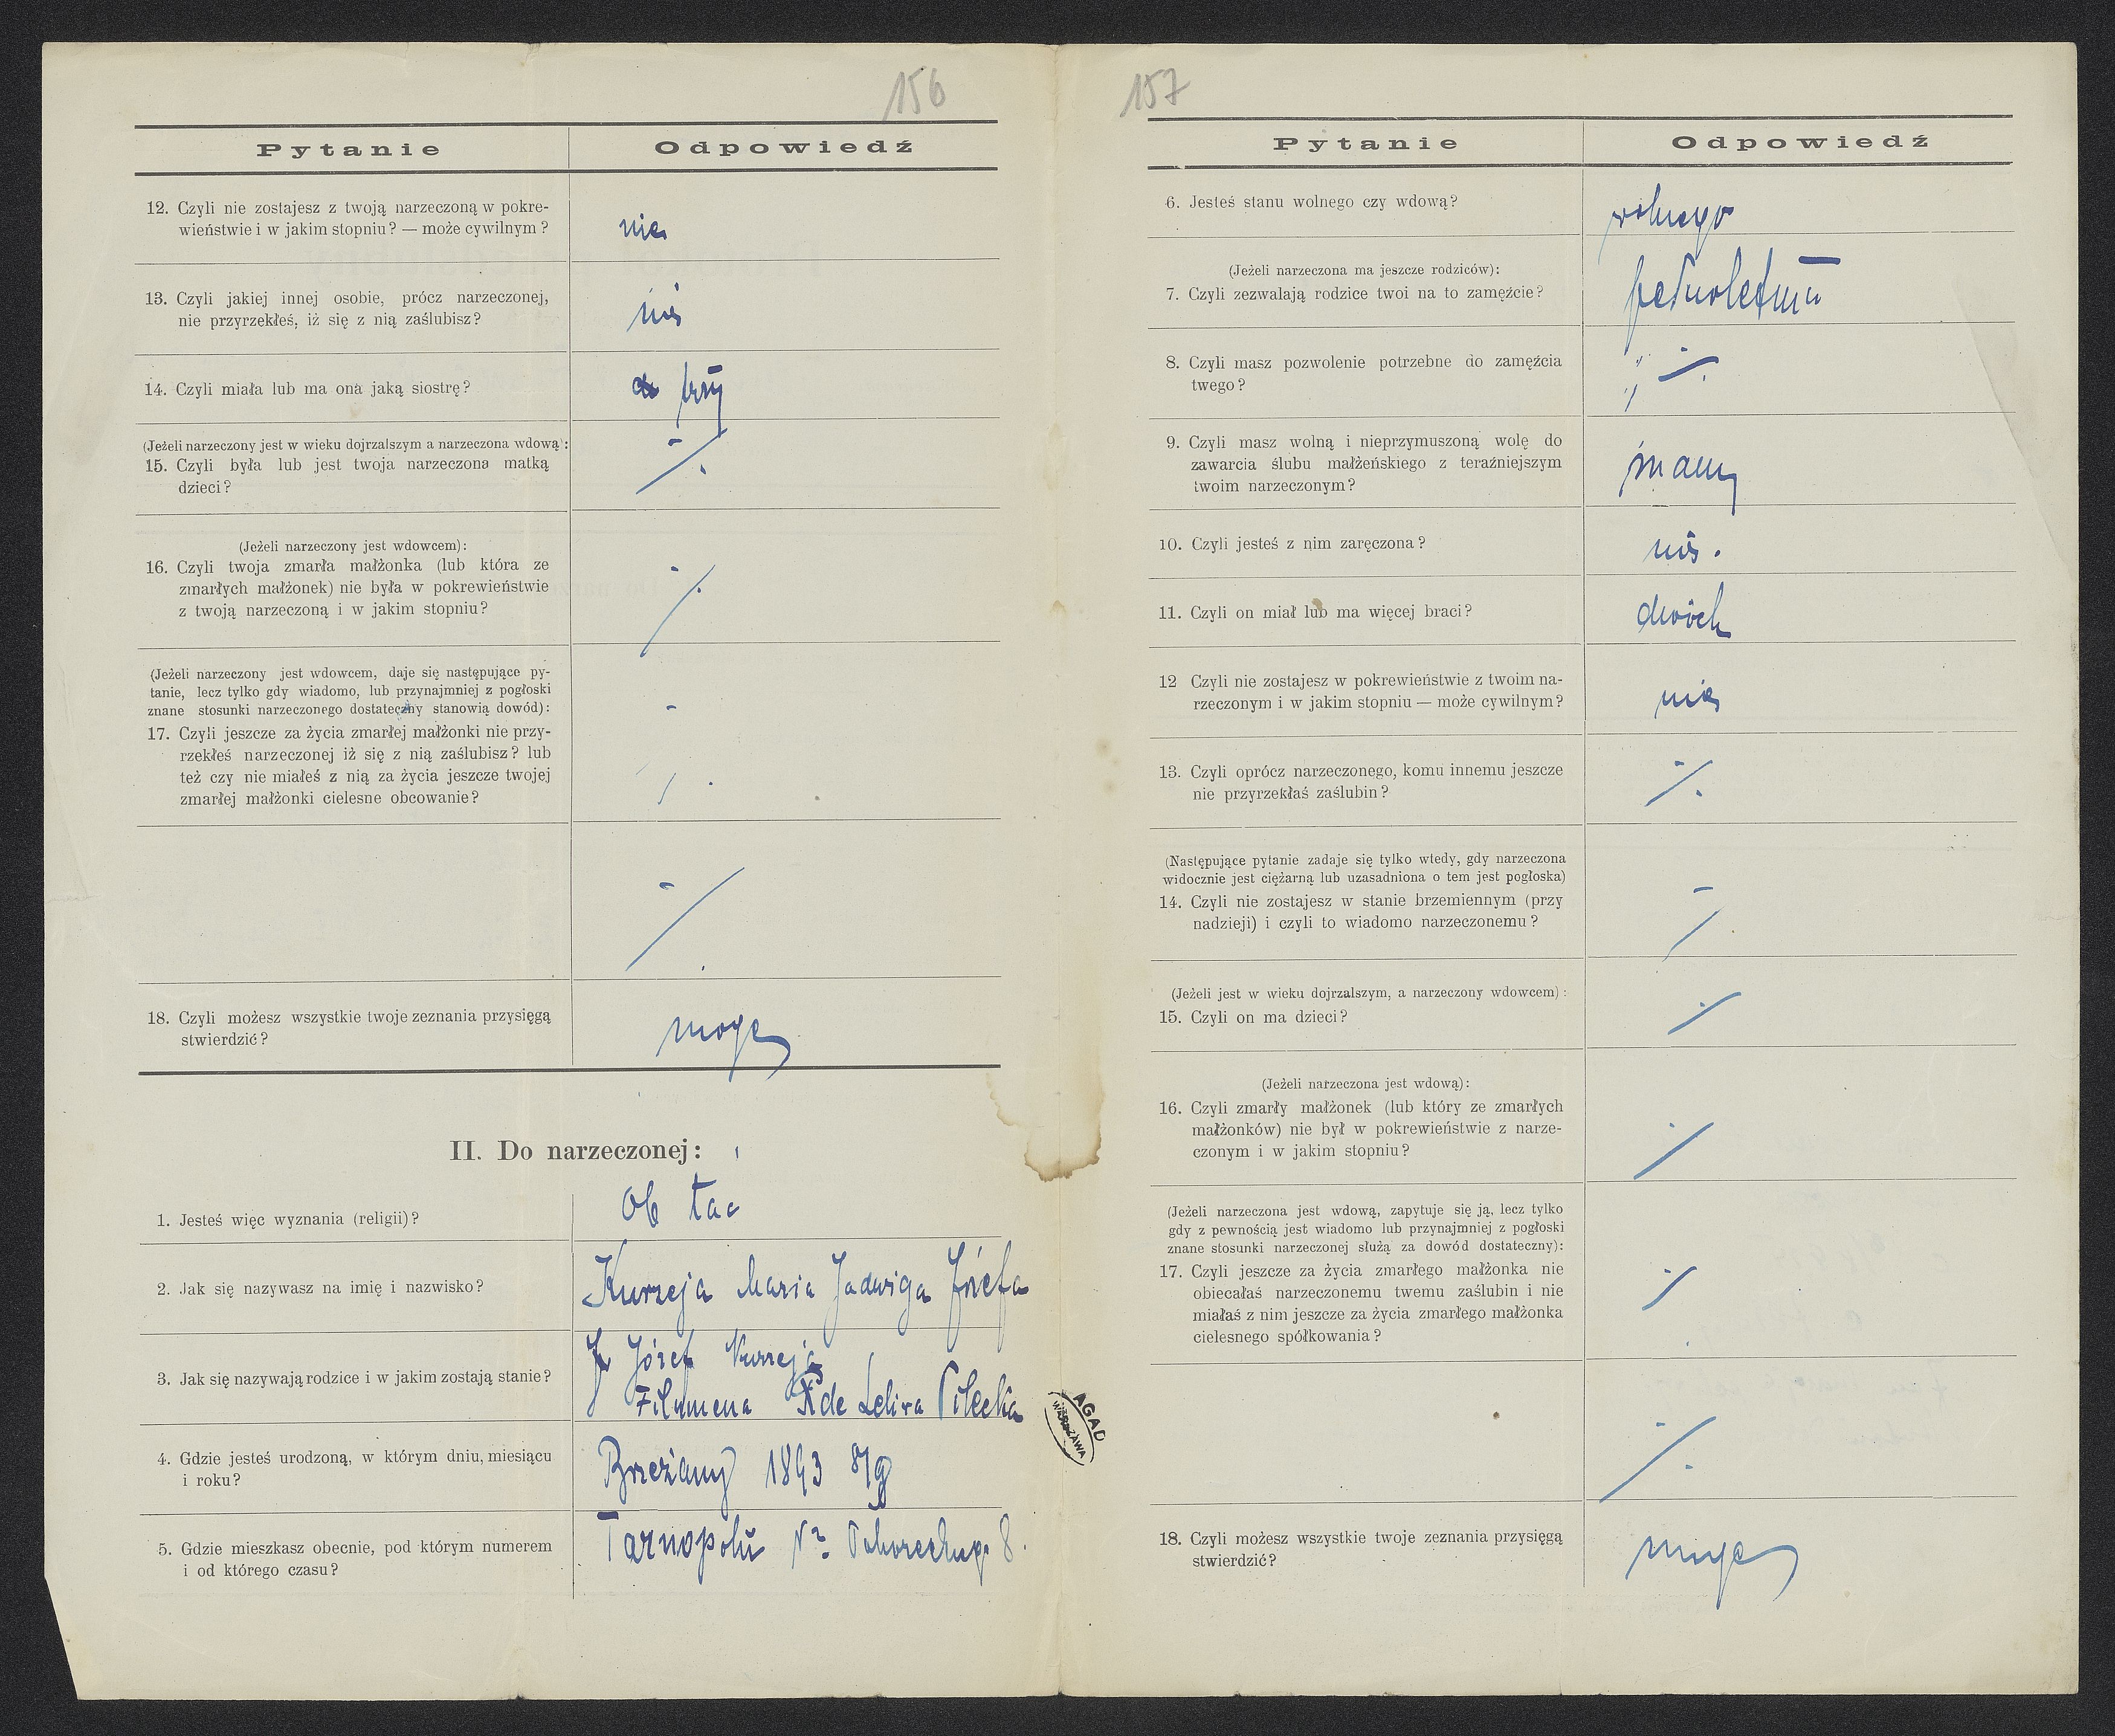 156
Pytanie Odpowiedź
12. Czyli nie zostajesz z twoją narzeczoną w pokre-
wieństwie i w jakim stopniu? — może cywilnym? nie
13. Czyli jakiej innej osobie, prócz narzeczonej,
nie przyrzekłeś, iż się z nią zaślubisz? nie
14. Czyli miała lub ma ona jaką siostrę? trzy
(Jeżeli narzeczony jest w wieku dojrzalszym a narzeczona wdową):
15. Czyli była lub jest twoja narzeczona matką
dzieci?
(Jeżeli narzeczony jest wdowcem):
16. Czyli twoja zmarła małżonka (lub która ze
zmarłych małżonek) nie była w pokrewieństwie
z twoją narzeczoną i w jakim stopniu?
(Jeżeli narzeczony jest wdowcem, daje się następujące py-
tanie, lecz tylko gdy wiadomo, lub przynajmniej z pogłoski
znane stosunki narzeczonego dostateczny stanowią dowód):
17. Czyli jeszcze za życia zmarłej małżonki nie przy-
rzekłeś narzeczonej iż się z nią zaślubisz? lub
też czy nie miałeś z nią za życia jeszcze twojej
zmarłej małżonki cielesne obcowanie?
18. Czyli możesz wszystkie twoje zeznania przysięgą
stwierdzić? mogę
II. Do narzeczonej:
1. Jesteś więc wyznania (religii)? ob łac
2. Jak się nazywasz na imię i nazwisko? Kurzeja Maria Jadwiga Józefa
3. Jak się nazywają rodzice i w jakim zostają stanie? Józef Kurzeja
Filumena de Leliwa Pilecka
4. Gdzie jesteś urodzoną, w którym dniu, miesiącu
i roku? Brzeżany 1893 8/9
5. Gdzie mieszkasz obecnie, pod którym numerem
i od którego czasu? Tarnopolu 8.
AGAD
WARSZAWA
157
Pytanie Odpowiedź
6. Jesteś stanu wolnego czy wdową? wolnego
(Jeżeli narzeczona ma jeszcze rodziców):
7. Czyli zezwalają rodzice twoi na to zamęźcie? pełnoletnia
8. Czyli masz pozwolenie potrzebne do zamęźcia
twego?
9. Czyli masz wolną i nieprzymuszoną wolę do
zawarcia ślubu małżeńskiego z teraźniejszym
twoim narzeczonym? mam
10. Czyli jesteś z nim zaręczona? nie.
11. Czyli on miał lub ma więcej braci? dwóch
12 Czyli nie zostajesz w pokrewieństwie z twoim na-
rzeczonym i w jakim stopniu — może cywilnym? nie
13. Czyli oprócz narzeczonego, komu innemu jeszcze
nie przyrzekłaś zaślubin?
(Następujące pytanie zadaje się tylko wtedy, gdy narzeczona
widocznie jest ciężarną lub uzasadniona o tem jest pogłoska)
14. Czyli nie zostajesz w stanie brzemiennym (przy
nadzieji) i czyli to wiadomo narzeczonemu?
(Jeżeli jest w wieku dojrzalszym, a narzeczony wdowcem):
15. Czyli on ma dzieci?
(Jeżeli narzeczona jest wdową):
16. Czyli zmarły małżonek (lub który ze zmarłych
małżonków) nie był w pokrewieństwie z narze-
czonym i w jakim stopniu?
(Jeżeli narzeczona jest wdową, zapytuje się ją, lecz tylko
gdy z pewnością jest wiadomo lub przynajmniej z pogłoski
znane stosunki narzeczonej służą za dowód dostateczny):
17. Czyli jeszcze za życia zmarłego małżonka nie
obiecałaś narzeczonemu twemu zaślubin i nie
miałaś z nim jeszcze za życia zmarłego małżonka
cielesnego spółkowania?
18. Czyli możesz wszystkie twoje zeznania przysięgą
stwierdzić? mogę